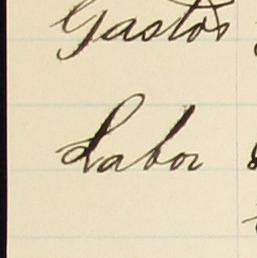 Gastos
Labor